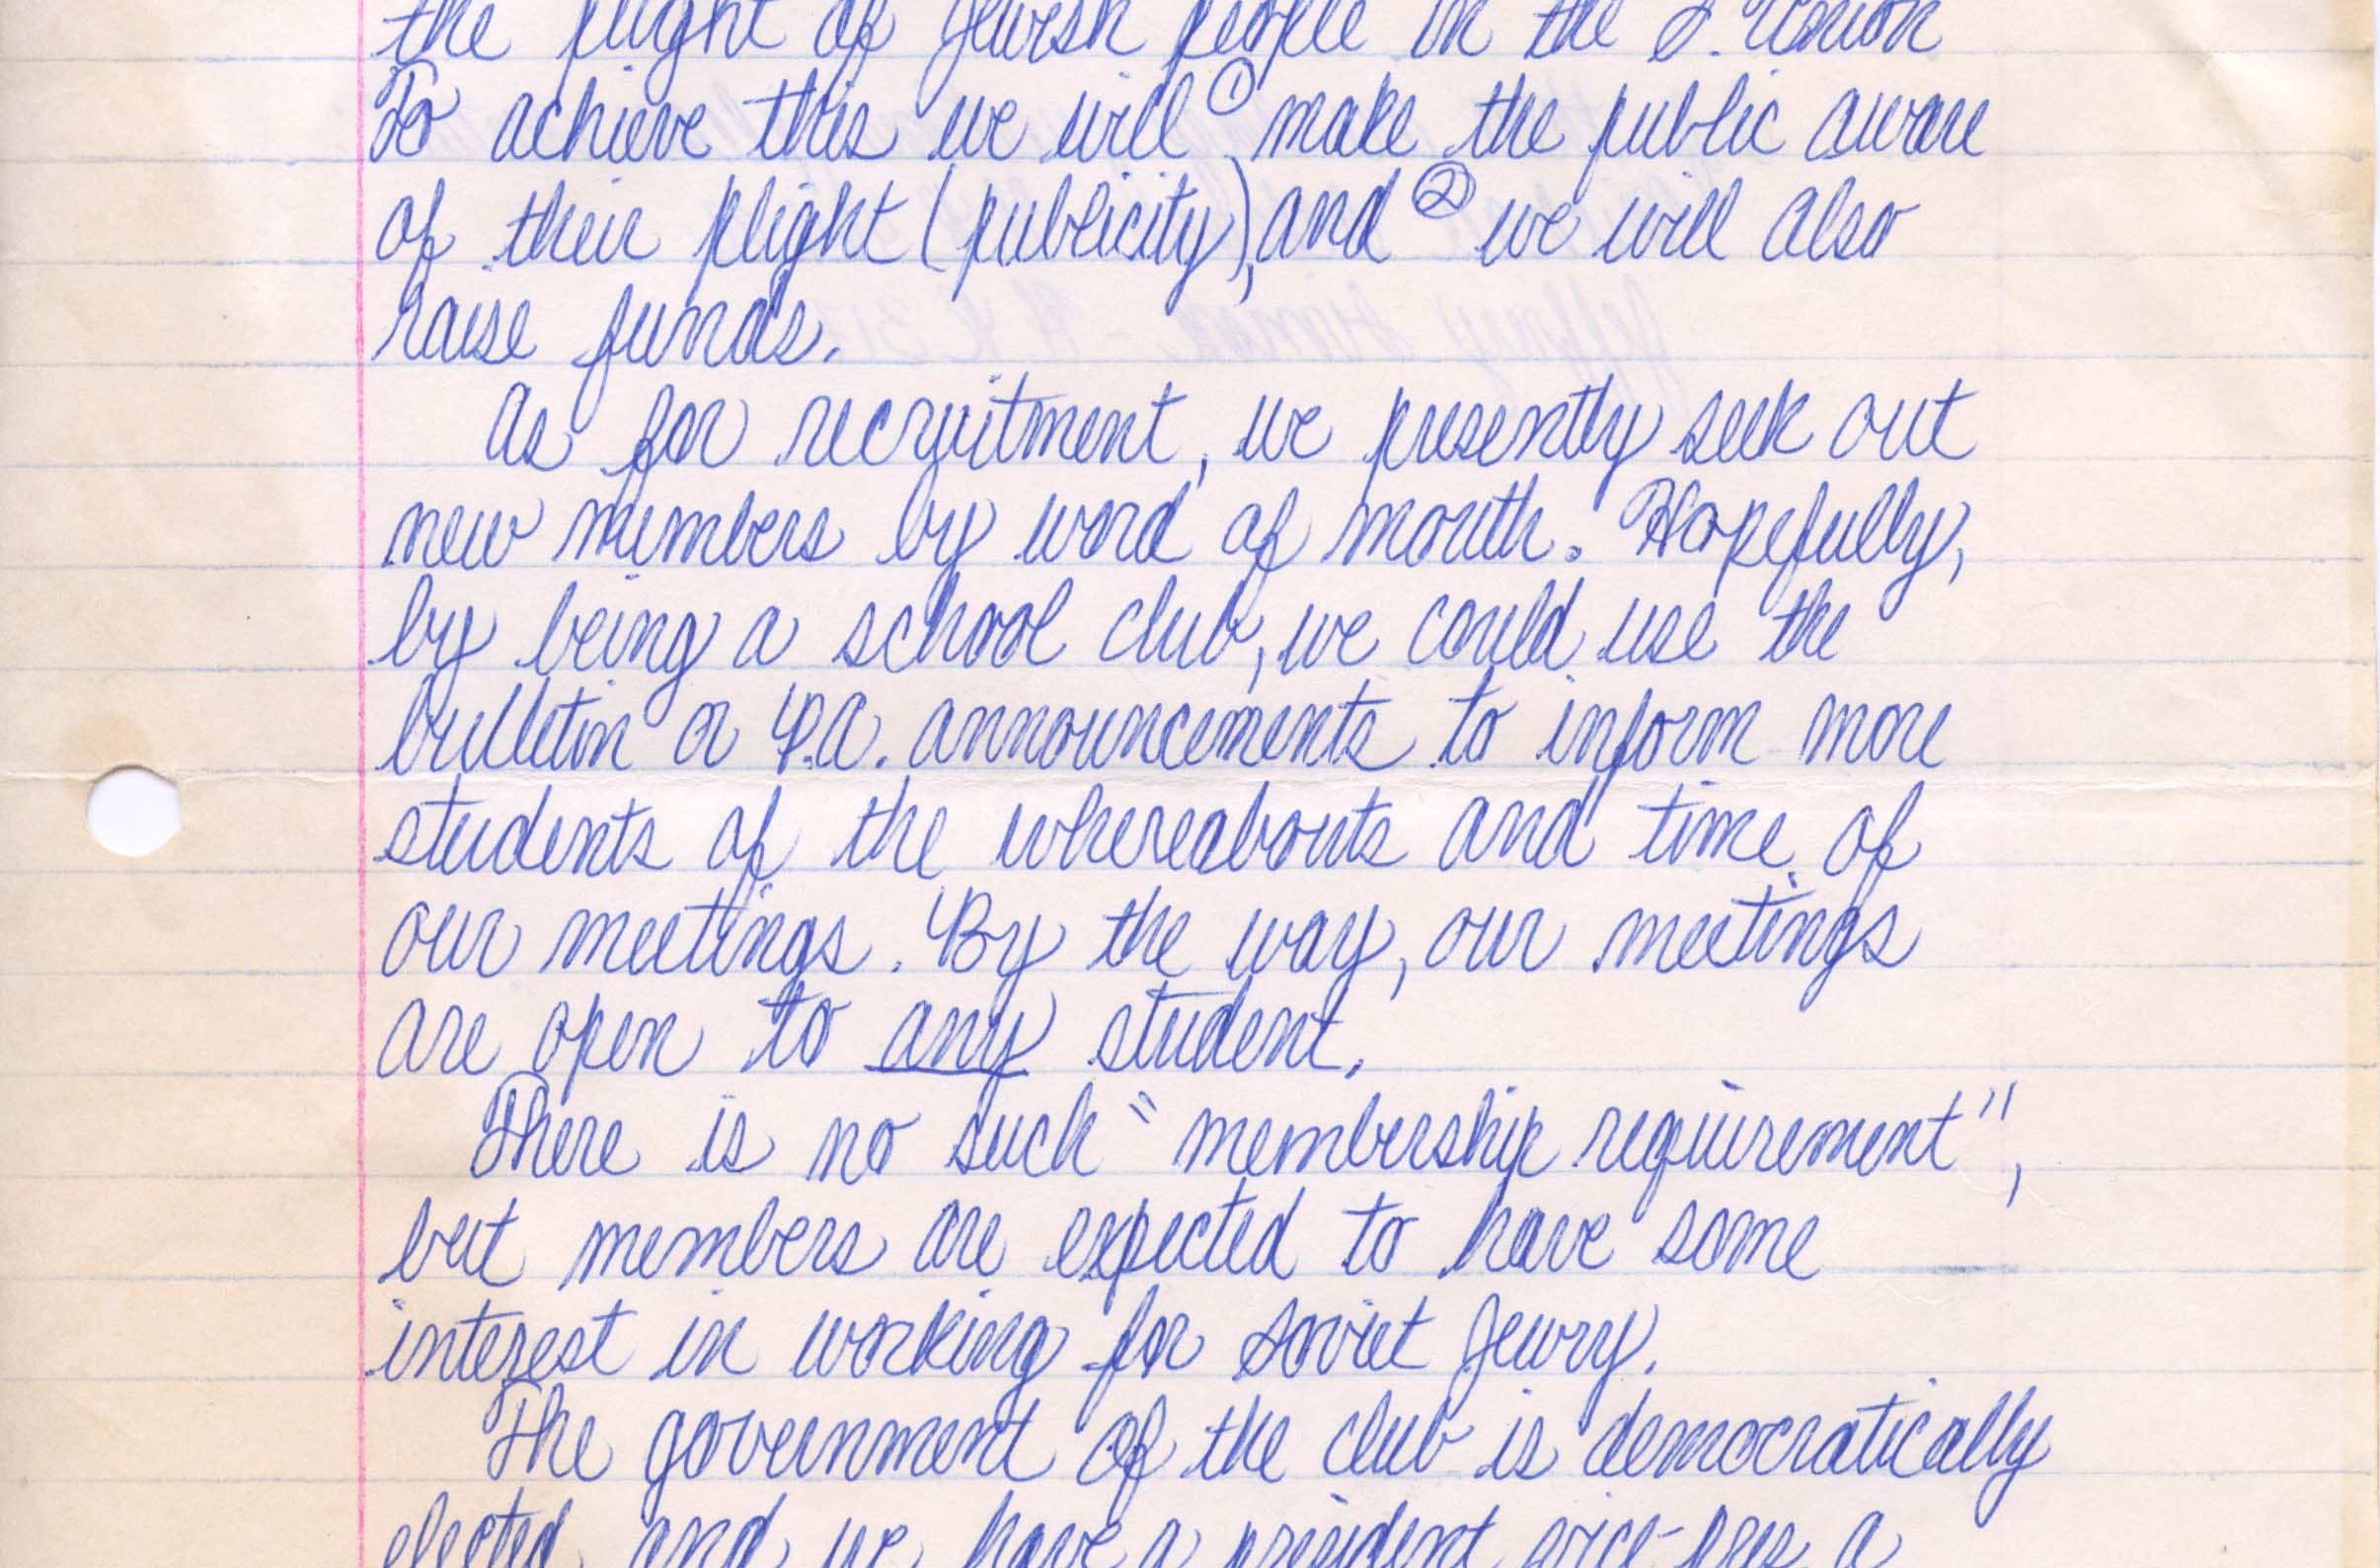 the plight of Jewish people in the S. Union
To achieve this we will ① make the public aware
of their plight (publicity), and ② we will also
raise funds.
As for recruitment, we presently seek out
new members by word of mouth. Hopefully,
by being a school club, we could use the
bulletin or P.A. announcements to inform more
students of the whereabouts and time of
our meetings. By the way, our meetings
are open to any student.
There is no such "membership requirement",
but members are expected to have some
interest in working for Soviet Jewry.
The government of the club is democratically
elected, and we have a president, vice-pres, a